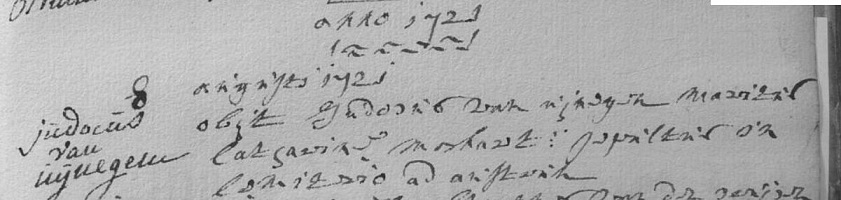 anno 1721
8 augusti 1721
judocus van nijnegem
obijt Judocus van nijnegen maritus
Catharinæ : sepultus in
cemiterio ad austrum